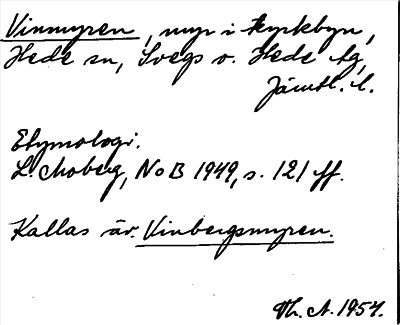 Vinmyren, myr i Kyrkbyn,
Hede sn, Svegs o. Hede tg,
Jämtl. l.
Etymologi.
L. Moberg, NoB 1949, s. 121 ff.
Kallas äv. Vinbergsmyren.
Th. A. 1954.